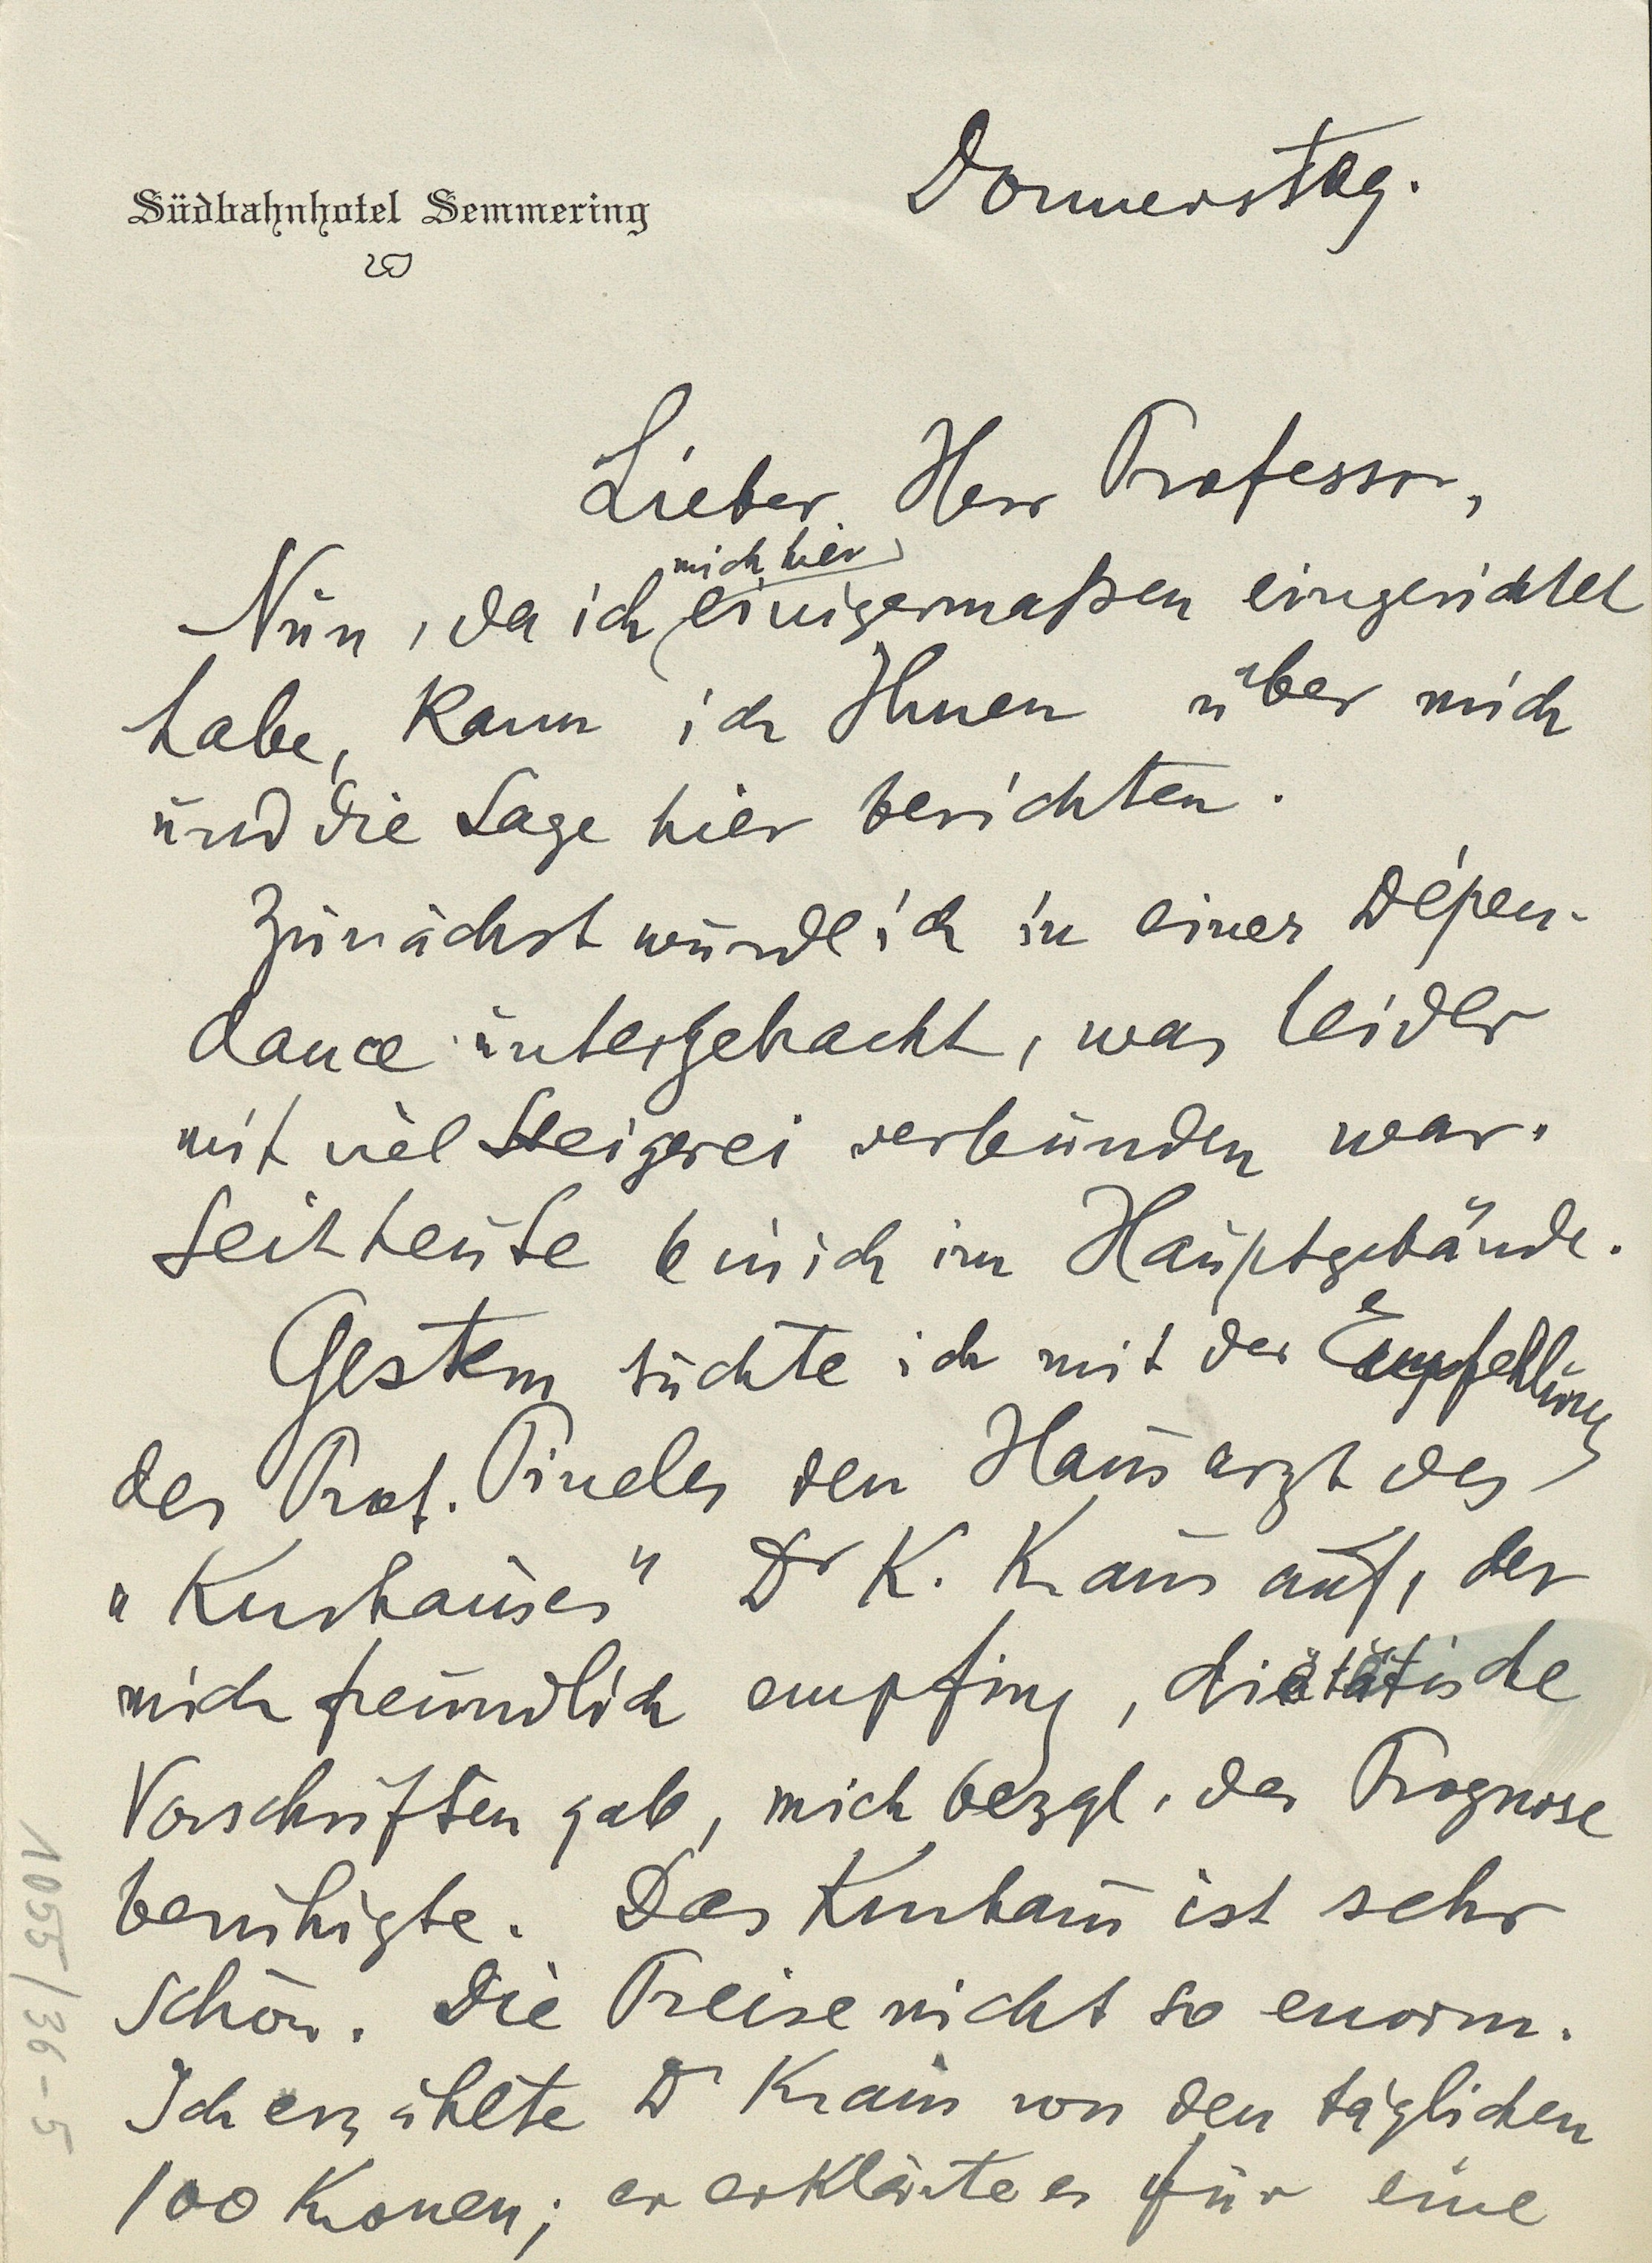 Südbahnhotel Semmering
Donnerstag.
Lieber Herr Professor,
mich hier
Nun, da ich einigermaßen eingerichtet
habe, kann ich Ihnen über mich
und die Lage hier berichten.
Zunächst wurde ich in einer Dépen-
dance untergebracht, was leider
mit viel Steigerei verbunden war.
Seit heute bin ich im Hauptgebäude.
Gestern suchte ich mit der Empfehlung
des Prof. Pineles den Hausarzt des
"Kurhauses" Dr K. Kraus auf, der
mich freundlich empfing, diätätische
Vorschriften gab, mich bezgl. der Prognose
beruhigte. Das Kurhaus ist sehr
schön. Die Preise nicht so enorm.
Ich erzählte Dr Kraus von den täglichen
100 Kronen; er erklärte es für eine
1055/36-5